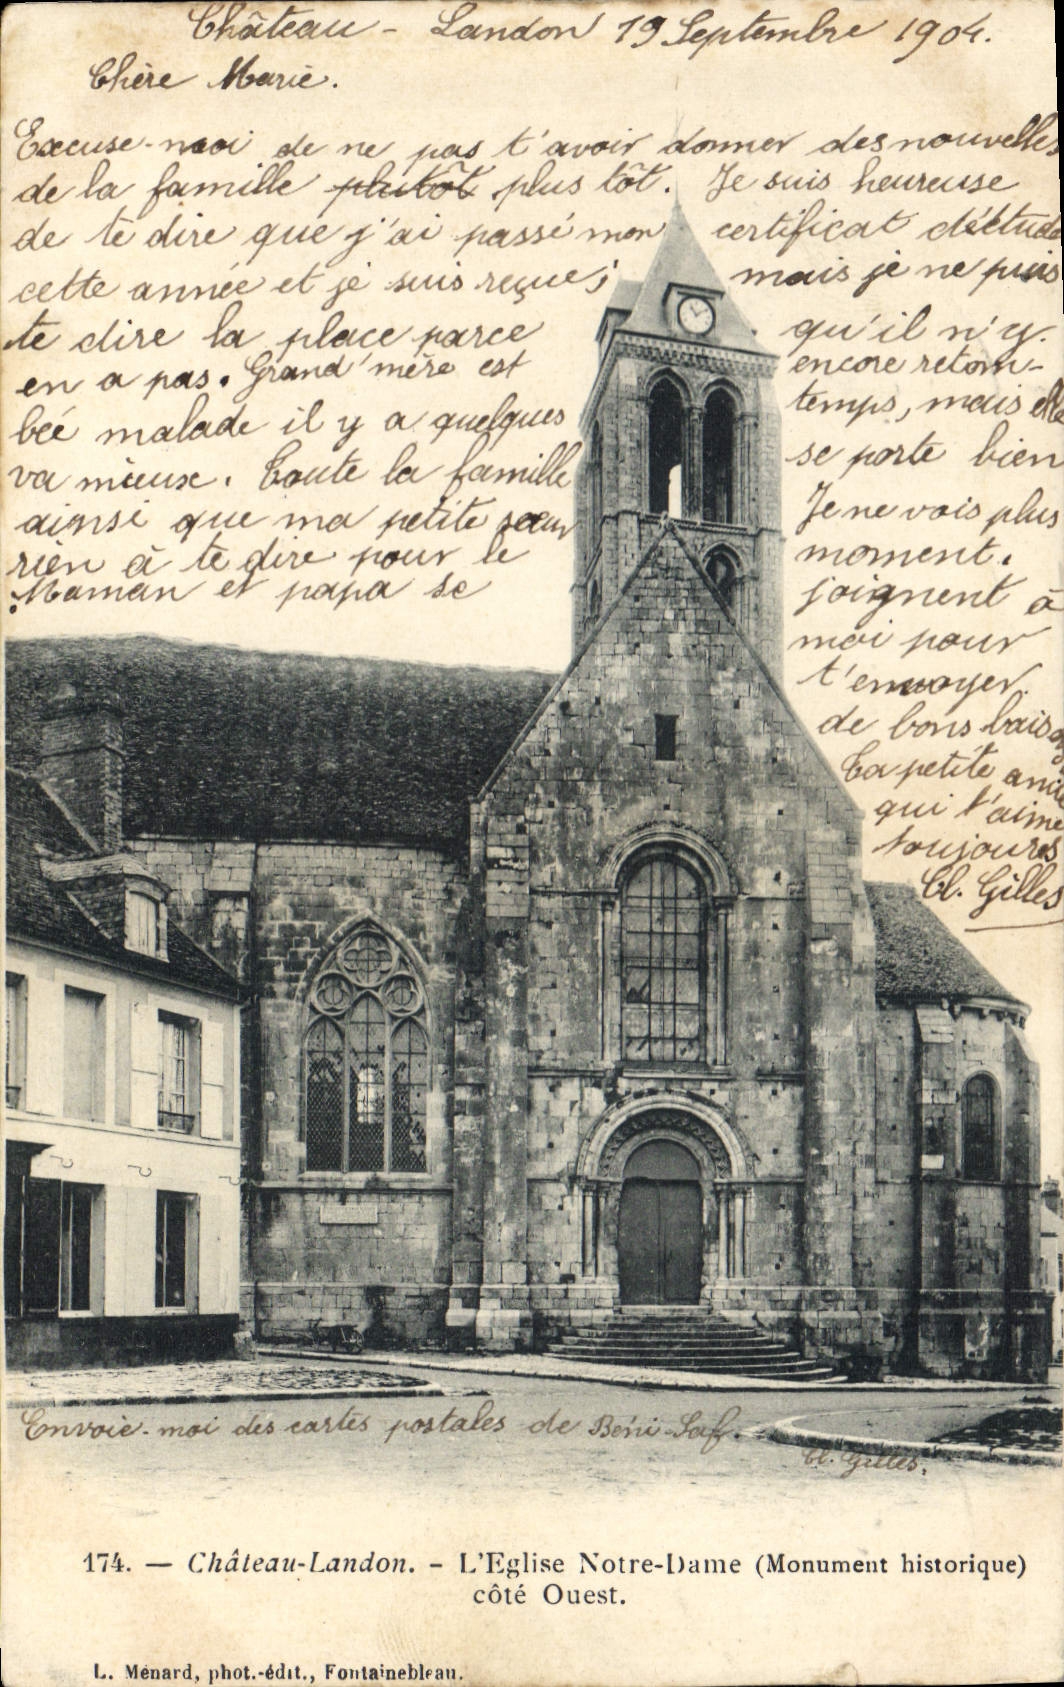 Château - Landon 19 Septembre 1904.
Chère Marie.
Excuse-moi de ne pas t'avoir donner des nouvelles
de la famille plutôt plus tôt. Je suis heureuse
de te dire que j'ai passé mon certificat d'étude
cette année et je suis reçue; mais je ne puis
te dire la place parce qu'il n'y.
en a pas. Grand'mère est encore retom-
bée malade il y a quelques temps, mais elle
va mieux. Toute la famille se porte bien
ainsi que ma petite sœur Je ne vois plus
rien à te dire pour le moment.
Maman et papa se joignent à
moi pour
t'envoyer
de bons baisers
Ta petite amie
qui t'aime
toujours
Cl. Gilles
Envoie-moi des cartes postales de Béni-Saf.
Cl. Gilles.
174. — Château-Landon. - L'Eglise Notre-Dame (Monument historique)
côté Ouest.
L. Ménard, phot.-édit., Fontainebleau.